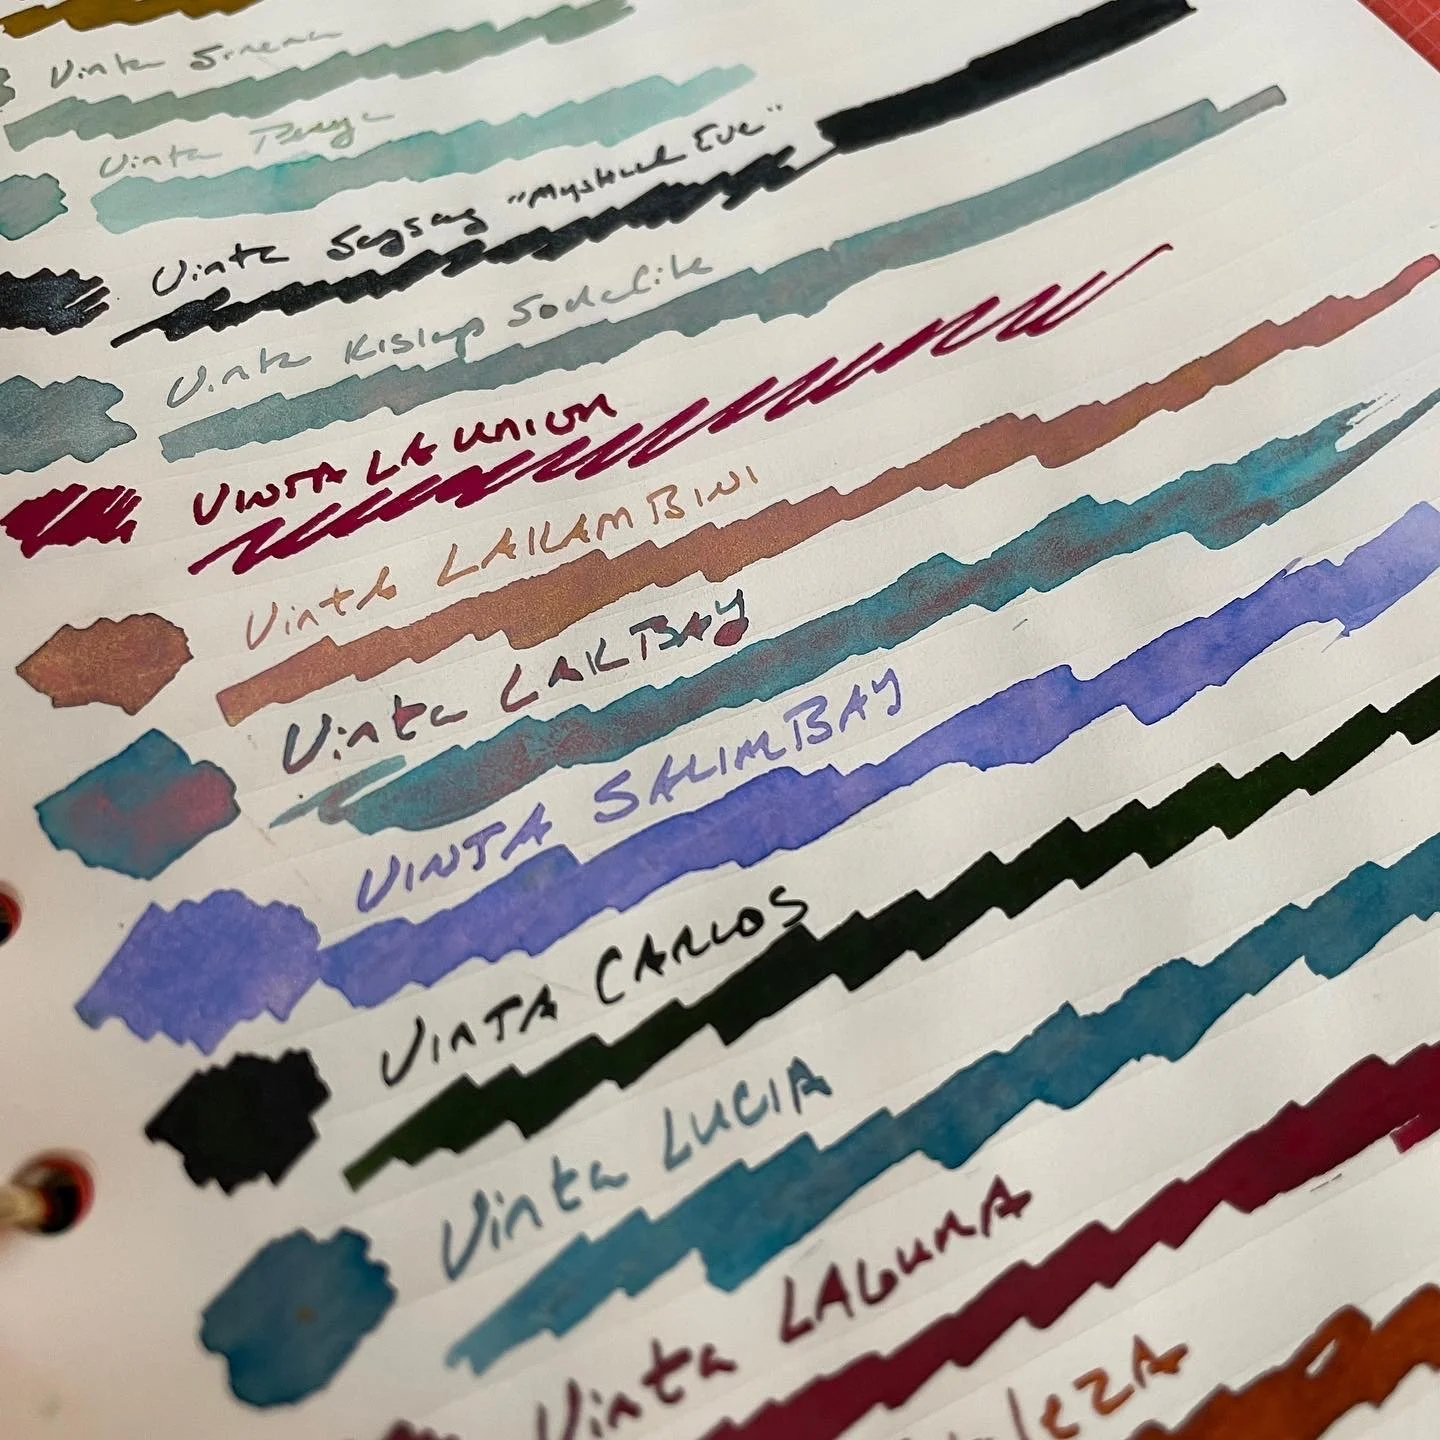 Vinta Sirena
Vinta
Vinta Sagsag "Mystical Eve"
Vinta Kislap Sodalite
VINTA LA UNION
Vinta LAKAMBINI
Vinta LAKBAY
VINTA SALIMBAY
VINTA CARLOS
Vinta LUCIA
Vinta LAGUNA
lezA